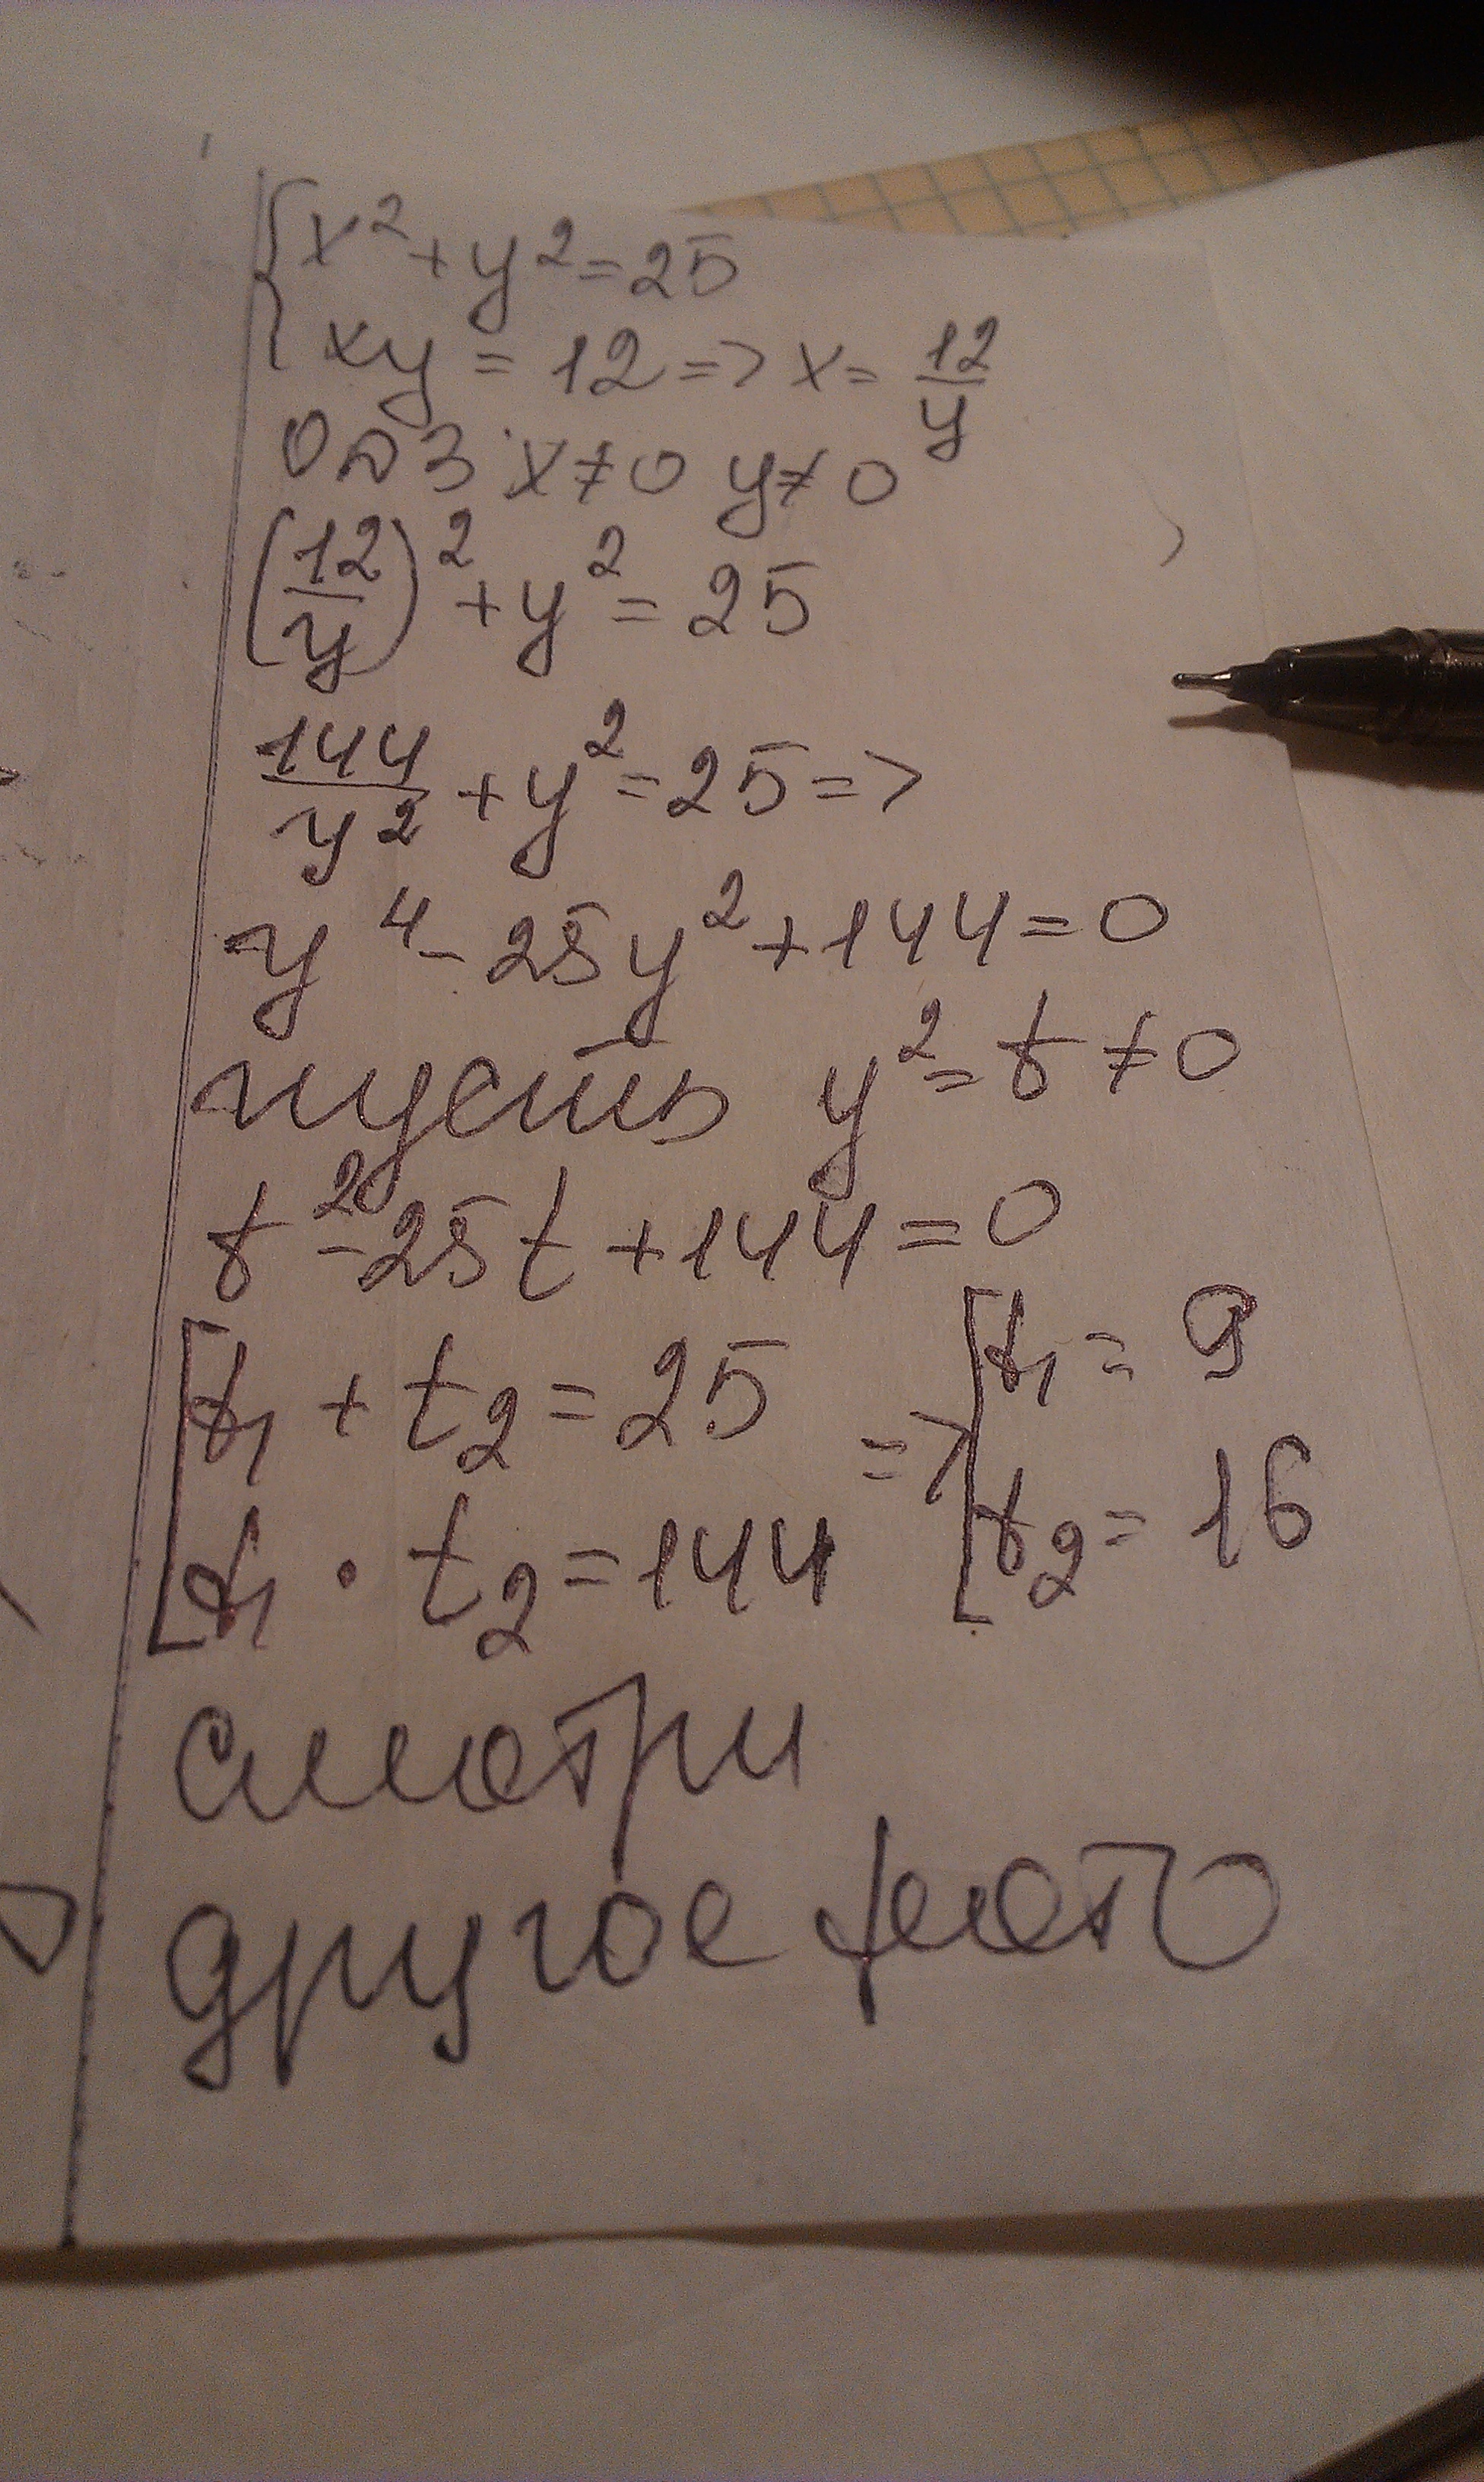 {x² + y² = 25
xy = 12 => x = 12/y
ОДЗ x ≠ 0 y ≠ 0
(12/y)² + y² = 25
144/y² + y² = 25 =>
y⁴ - 25y² + 144 = 0
пусть y² = t ≠ 0
t² - 25t + 144 = 0
[t₁ + t₂ = 25 => [t₁ = 9
t₁ · t₂ = 144 t₂ = 16
смотри
другое фото